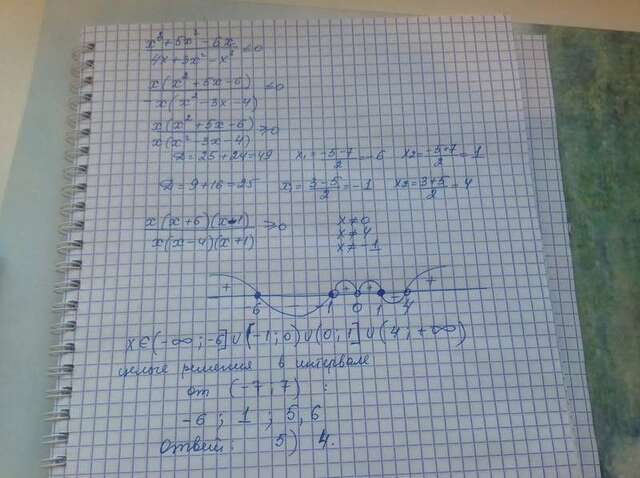 x³+5x²-6x / 4x+3x²-x³ ≤0
x(x²+5x-6) / -x(x²-3x-4) ≤0
x(x²+5x-6) / x(x²-3x-4) ≥0
D=25+24=49 x₁=-5-7/2=-6 x₂=-5+7/2=1
D=9+16=25 x₁=3-5/2=-1 x₂=3+5/2=4
x(x+6)(x-1) / x(x-4)(x+1) ≥0 x≠0
x≠4
x≠-1
+ - + + - +
6 1 0 1 4
x∈(-∞;-6]∪[-1;0)∪(0;1]∪(4;+∞)
целые решения в интервале
от (-7;7) :
-6 ; 1 ; 5,6
Ответ: 5) 4.